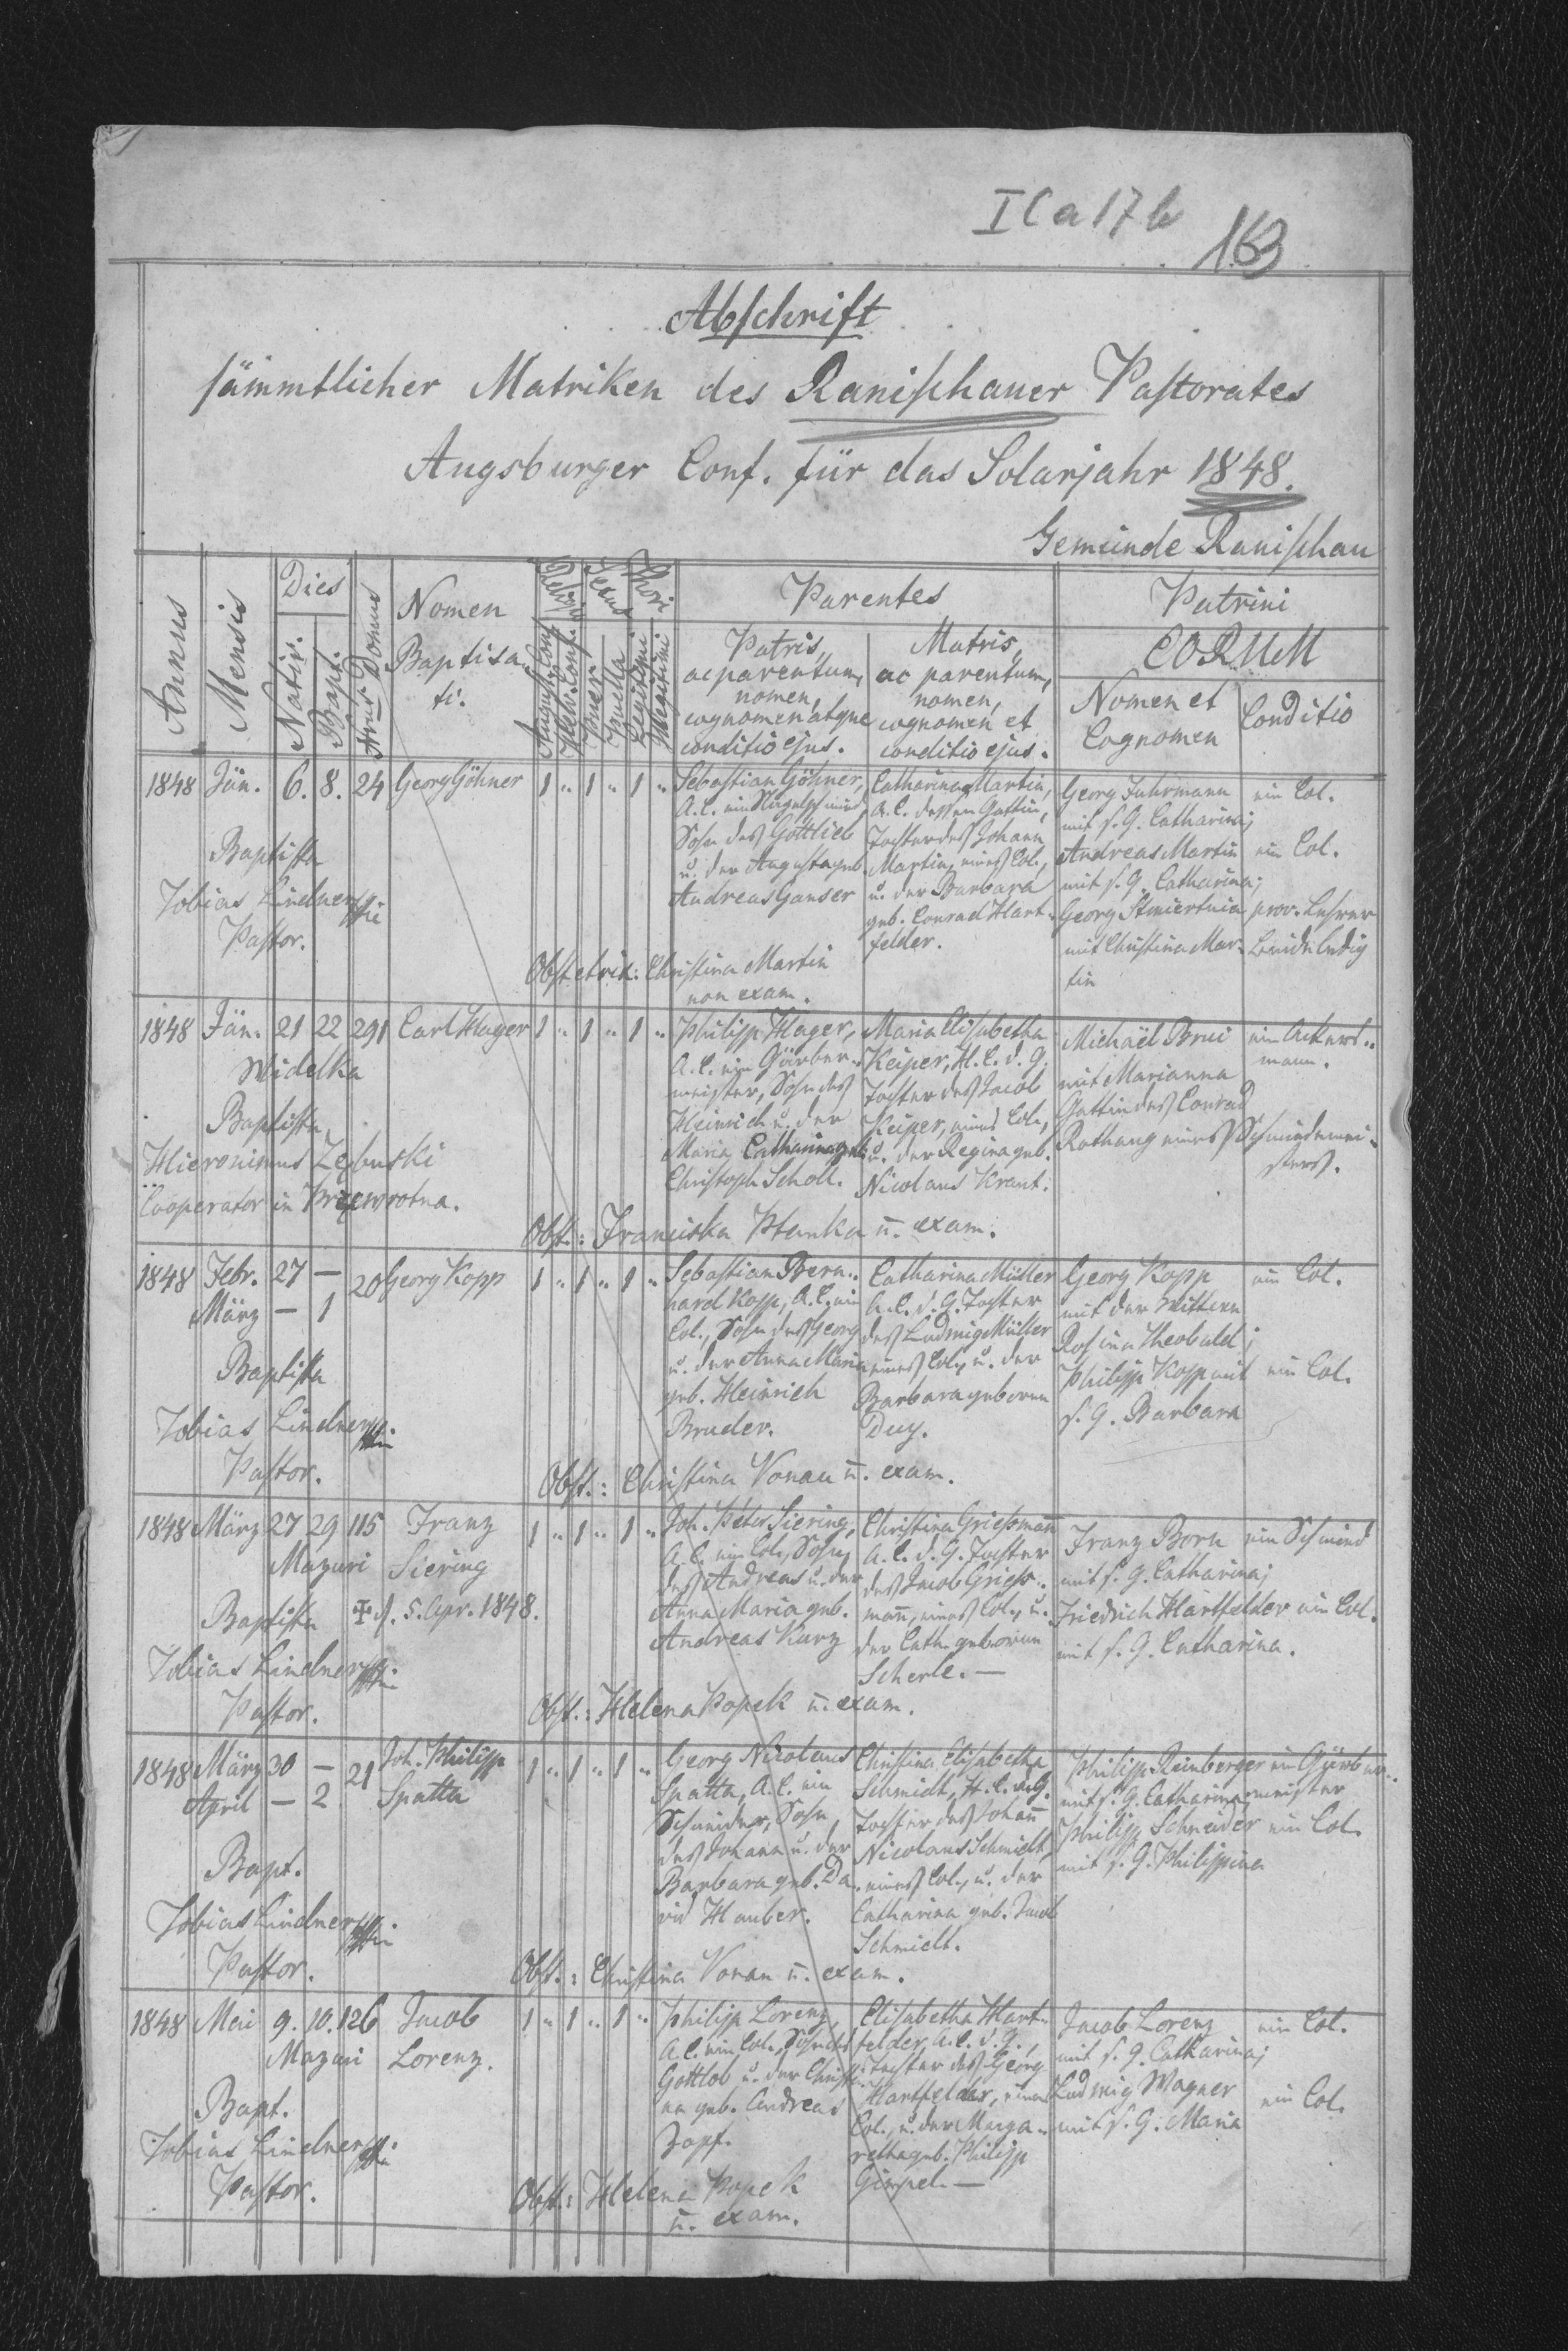 I C a 17 b
163
Abschrift
sämmtlicher Matriken des Ranischauer Pastorates
Augsburger Conf. für das Solarjahr 1848.
Gemeinde Ranischau
Annus
Mensis
Dies
Nativ.
Bapt.
Nrus Domus
Nomen
Baptisa-
ti.
Religio
August. Conf.
Helv. Conf.
Sexus
Puer
Puella
Thori
Legitimi
Illegitimi
Parentes
Patris,
ac parentum,
nomen,
cognomen atque
conditio ejus.
Matris,
ac parentum,
nomen,
cognomen et
conditio ejus.
Patrini
EORUM
Nomen et
Cognomen
Conditio
1848 Jän. 6. 8. 24 Georg Göhner 1 " 1 " 1 "
Baptista
Tobias Lindner
Pastor.
Sebastian Göhner,
A.C. ein Nagelschmied,
Sohn des Gottlieb
u. der Augusta geb.
Andreas Ganser
Catharina Martin,
A.C. dessen Gattin,
Tochter des Johann
Martin, eines Col.,
u. der Barbara
geb. Conrad Hart-
felder.
Georg Fuhrmann ein Col.
mit s. G. Catharina;
Andreas Martin ein Col.
mit s. G. Catharina;
Georg Stmiertnia prov. Lehrer
mit Christina Mar- Beide ledig
tin
Obstetrix: Christina Martin
non exam.
1848 Jän. 21 22 291 Carl Hager 1 " 1 " 1 "
Widelka
Baptista
Hieronimus Zębuski
Cooperator in Przewrotna.
Philipp Hager,
A.C. ein Gärber-
meister, Sohn des
Heinrich u. der
Maria Catharina geb.
Christoph Scholl.
Maria Elisabetha
Keiper, H.C. d. G.
Tochter des Jacob
Keiper, eines Col.,
u. der Regina geb.
Nicolaus Krant.
Michaël Brui ein Ackers-
mann.
mit Marianna
Gattin des Conrad
Rothaug eines Schmiedemei-
sters.
Obst.: Franciska Ptanka n. exam.
1848 Febr. 27 — 20 Georg Kopp 1 " 1 " 1 "
März — 1
Baptista
Tobias Lindner
Pastor.
Sebastian Bern-
hard Kopp, A.C. ein
Col., Sohn des Georg
u. der Anna Maria
geb. Heinrich
Bruder.
Catharina Müller
A.C. d. G. Tochter
des Ludwig Müller
eines Col., u. der
Barbara geborene
Duy.
Georg Kopp ein Col.
mit der Wittwe
Rosina Theobald;
Philipp Kopp mit ein Col.
s. G. Barbara
Obst.: Christina Vonau n. exam.
1848 März 27 29 115 Franz 1 " 1 " 1 "
Mazuri Siering
Baptista † d. 5. Apr. 1848.
Tobias Lindner
Pastor.
Joh. Peter Siering,
A.C. ein Col., Sohn
des Andreas u. der
Anna Maria geb.
Andreas Kurz
Christina Griessmañ
A.C. d. G. Tochter
des Jacob Griess-
mañ, eines Col., u.
der Cath. geborene
Scherle. —
Franz Born ein Schmied
mit s. G. Catharina;
Friedrich Hartfelder ein Col.
mit s. G. Catharina.
Obst.: Helena Popek n. exam.
1848 März 30 — 21 Joh. Philipp 1 " 1 " 1 "
April — 2 Spatta
Bapt.
Tobias Lindner
Pastor.
Georg Nicolaus
Spatta, A.C. ein
Schneider, Sohn
des Johann u. der
Barbara geb. Da-
vid Hauber.
Christina Elisabetha
Schmidt, H.C. d. G.
Tochter des Johañ
Nicolaus Schmidt,
eines Col., u. der
Catharina geb. Jacob
Schmidt.
Philipp Reinberger ein Gärber-
mit s. G. Catharina; meister
Philipp Schneider ein Col.
mit s. G. Philippina
Obst.: Christina Vonau n. exam.
1848 Mai 9. 10. 126 Jacob 1 " 1 " 1 "
Mazuri Lorenz.
Bapt.
Tobias Lindner
Pastor.
Philipp Lorenz,
A.C. ein Col., Sohn des
Gottlob u. der Christi-
na geb. Andreas
Zopf.
Elisabetha Hart-
felder, A.C. d. G.,
Tochter des Georg
Hartfelder, eines
Col., u. der Marga-
retha geb. Philipp
Gimpel. —
Jacob Lorenz ein Col.
mit s. G. Catharina;
Ludwig Wagner ein Col.
mit s. G. Maria
Obst.: Helena Popek
n. exam.